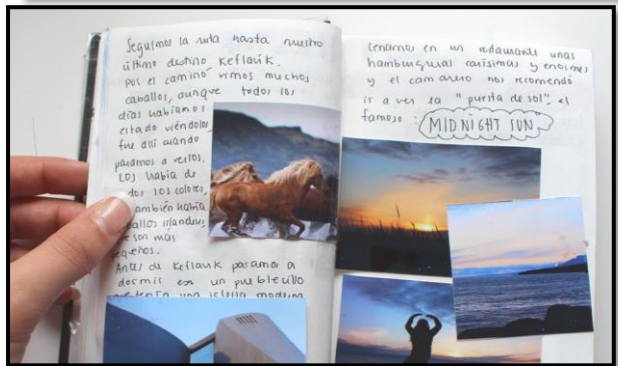 Seguimos la ruta hasta nuestro
último destino Keflavik.
por el camino vimos muchos
caballos, aunque todos los
días habíamos
estado viéndolos,
fue allí cuando
paramos a verlos.
Los había de
todos los colores,
también había
caballos islandeses,
que son más
pequeños.
Antes de Keflavik paramos a
dormir en un pueblecillo
una iglesia moderna
Cenamos en un restaurante unas
hamburguesas carísimas y enormes
y el camarero nos recomendó
ir a ver la "puesta de sol", el
famoso: MIDNIGHT SUN